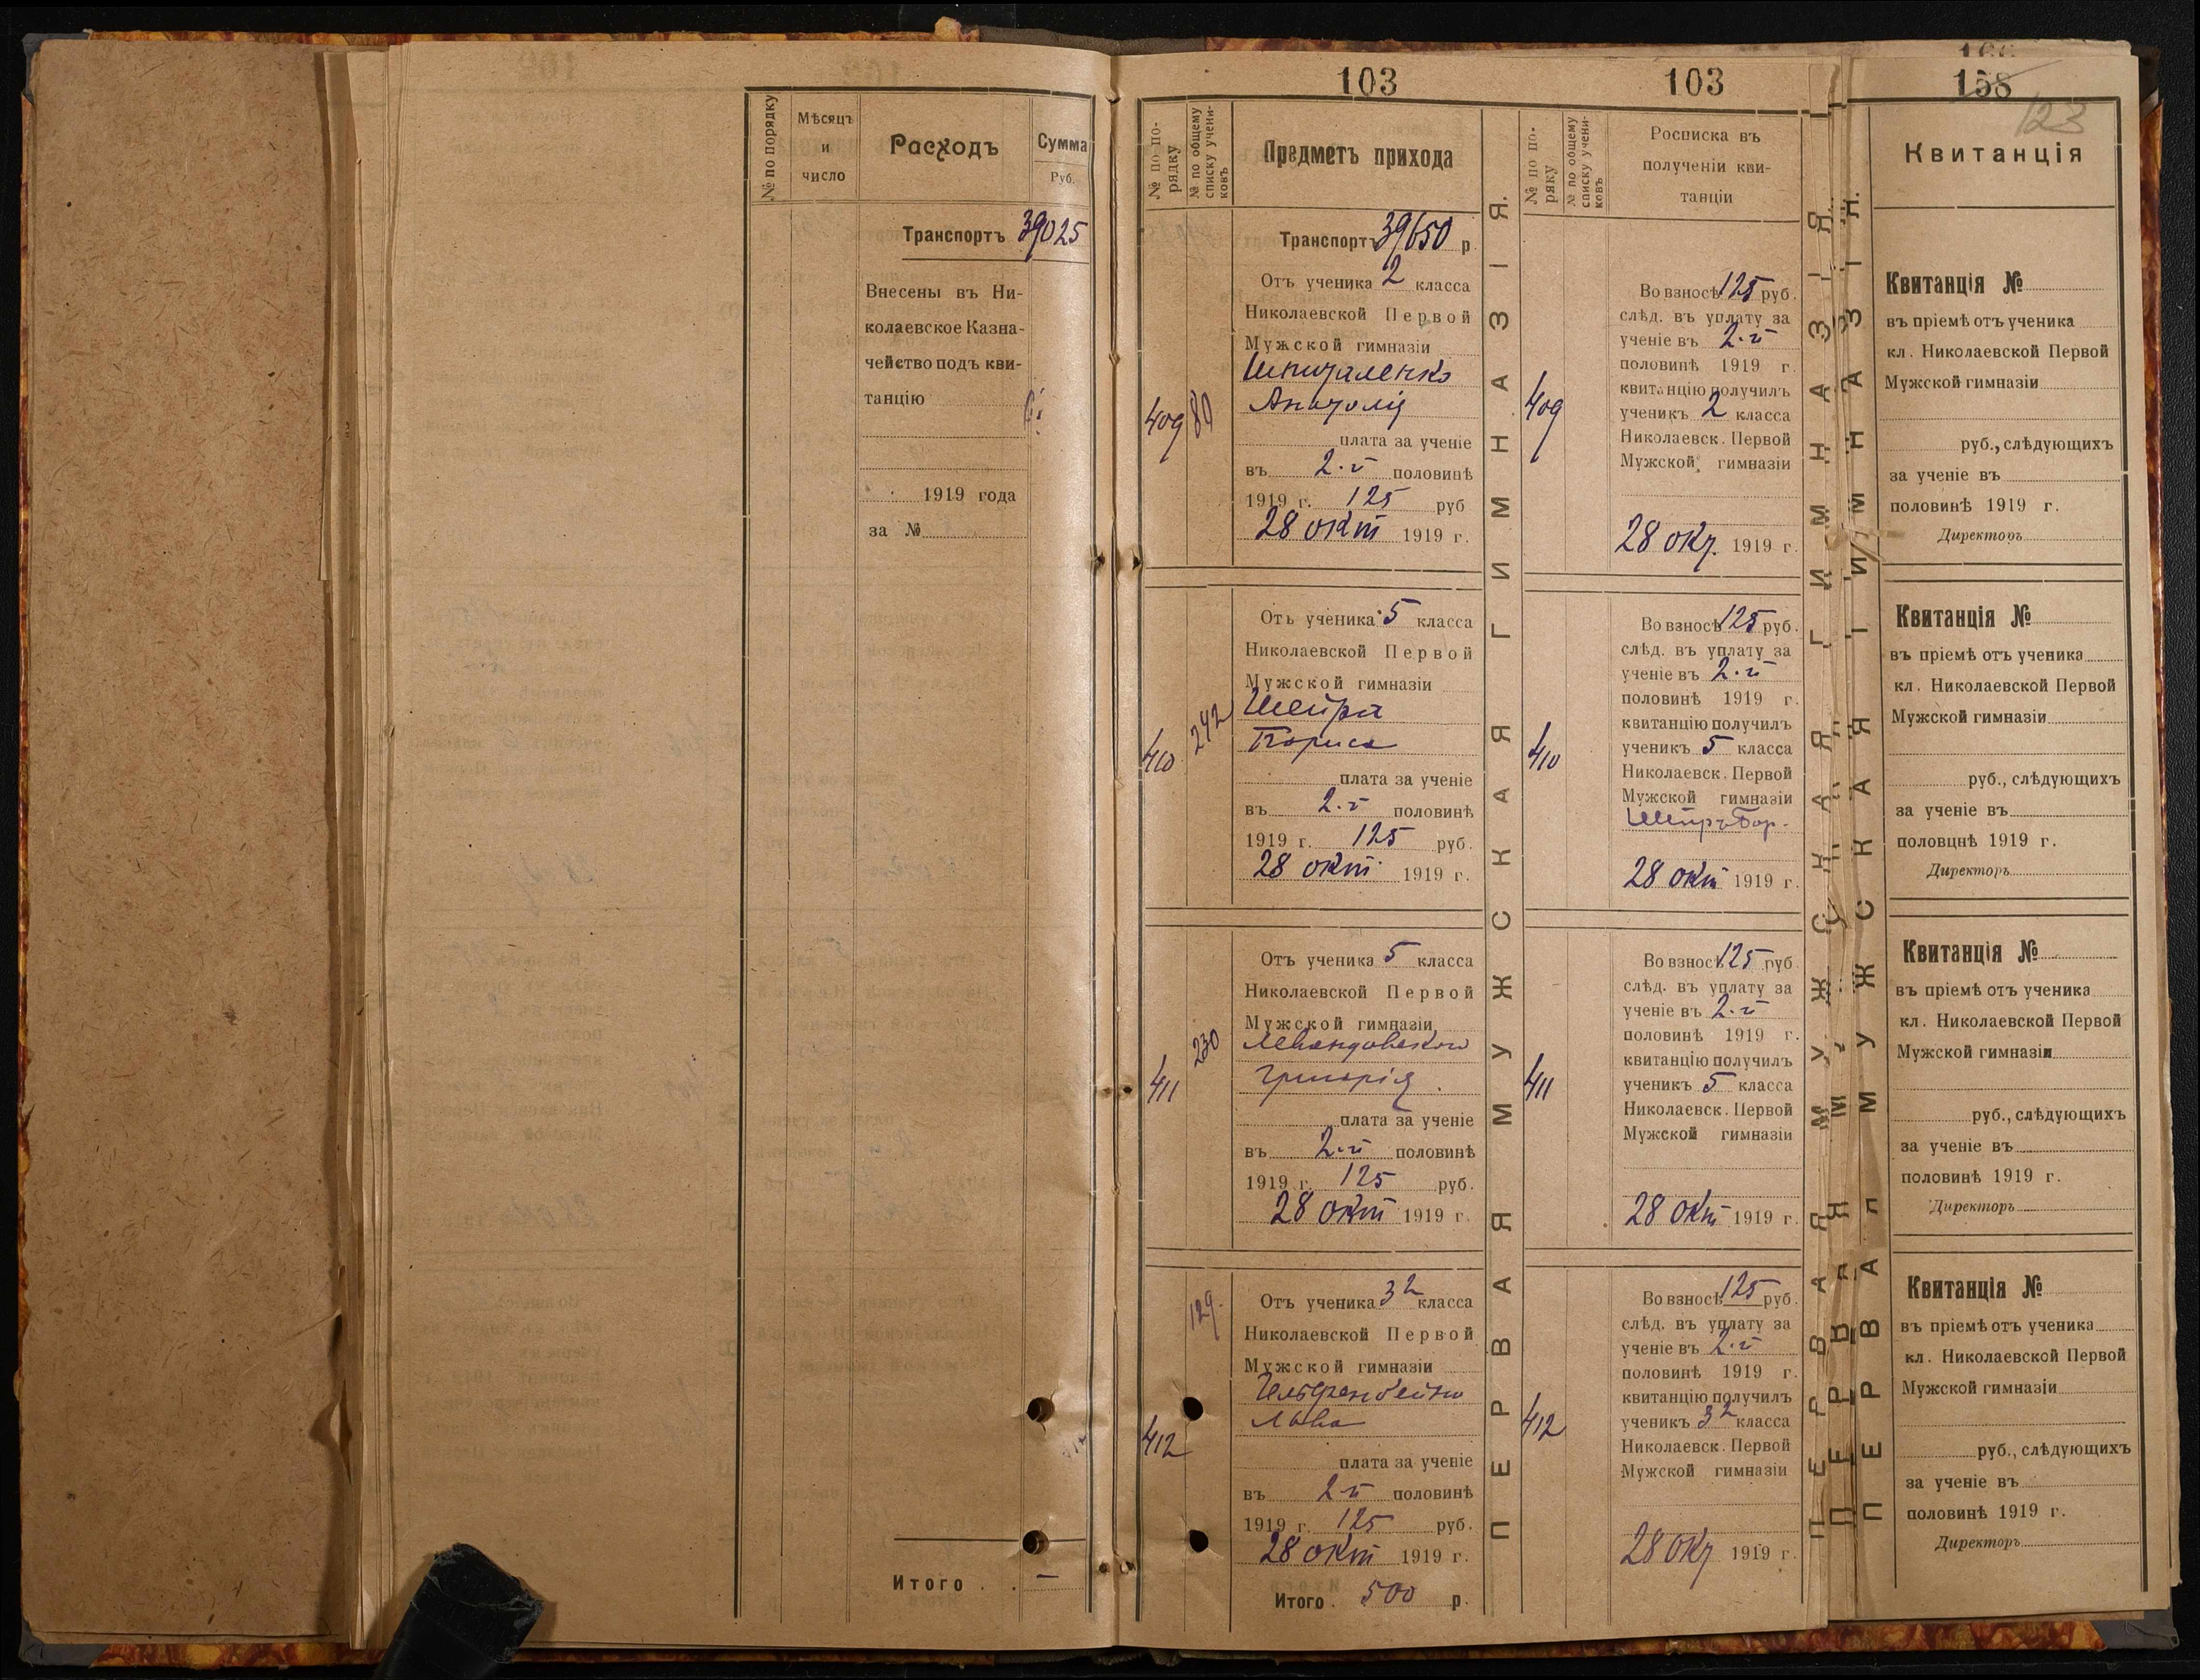 № по порядку
Мѣсяцъ
и
число
Расходъ
Сумма
Руб.
Транспортъ 39025
Внесены въ Ни-
колаевское Казна-
чейство подъ кви-
танцію
1919 года
за №
Итого . . —
103
№ по по-
рядку
№ по общему
списку учени-
ковъ
Предметъ прихода
Транспортъ 39650 р.
409
80
Отъ ученика 2 класса
Николаевской Первой
Мужской гимназіи
Шпиталенко
Анатолія
плата за ученіе
въ 2-й половинѣ
1919 г. 125 руб
28 окт 1919 г.
410
242
Отъ ученика 5 класса
Николаевской Первой
Мужской гимназіи
Шейра
Бориса
плата за ученіе
въ 2-й половинѣ
1919 г. 125 руб.
28 окт. 1919 г.
411
230
Отъ ученика 5 класса
Николаевской Первой
Мужской гимназіи
Левандовскаго
Григорія
плата за ученіе
въ 2-й половинѣ
1919 г. 125 руб.
28 окт 1919 г.
412
129.
Отъ ученика 3² класса
Николаевской Первой
Мужской гимназіи
Льва
плата за ученіе
въ 2-й половинѣ
1919 г. 125 руб.
28 окт 1919 г.
Итого . 500 р.
ПЕРВАЯ МУЖСКАЯ ГИМНАЗІЯ.
103
№ по по-
ряку
№ по общему
списку учени-
ковъ
Росписка въ
полученіи кви-
танціи
409
Во взносѣ 125 руб.
слѣд. въ уплату за
ученіе въ 2-й
половинѣ 1919 г.
квитанцію получилъ
ученикъ 2 класса
Николаевск. Первой
Мужской гимназіи
28 окт. 1919 г.
410
Во взносѣ 125 руб.
слѣд. въ уплату за
ученіе въ 2-й
половинѣ 1919 г.
квитанцію получилъ
ученикъ 5 класса
Николаевск. Первой
Мужской гимназіи
Шейръ Бор.
28 окт 1919 г.
411
Во взносѣ 125 руб
слѣд. въ уплату за
ученіе въ 2-й
половинѣ 1919 г.
квитанцію получилъ
ученикъ 5 класса
Николаевск. Первой
Мужской гимназіи
28 окт 1919 г.
412
Во взносѣ 125 руб.
слѣд. въ уплату за
ученіе въ 2-й
половинѣ 1919 г.
квитанцію получилъ
ученикъ 3² класса
Николаевск. Первой
Мужской гимназіи
28 окт 1919 г.
ПЕРВАЯ МУЖСКАЯ ГИМНАЗІЯ.
ПЕРВАЯ МУЖСКАЯ ГИМНАЗІЯ.
158
123
Квитанція
Квитанція №
въ пріемѣ отъ ученика
кл. Николаевской Первой
Мужской гимназіи
руб., слѣдующихъ
за ученіе въ
половинѣ 1919 г.
Директоръ
Квитанція №
въ пріемѣ отъ ученика
кл. Николаевской Первой
Мужской гимназіи
руб., слѣдующихъ
за ученіе въ
половцнѣ 1919 г.
Директоръ
Квитанція №
въ пріемѣ отъ ученика
кл. Николаевской Первой
Мужской гимназіи
руб., слѣдующихъ
за ученіе въ
половинѣ 1919 г.
Директоръ
Квитанція №
въ пріемѣ отъ ученика
кл. Николаевской Первой
Мужской гимназіи
руб., слѣдующихъ
за ученіе въ
половинѣ 1919 г.
Директоръ